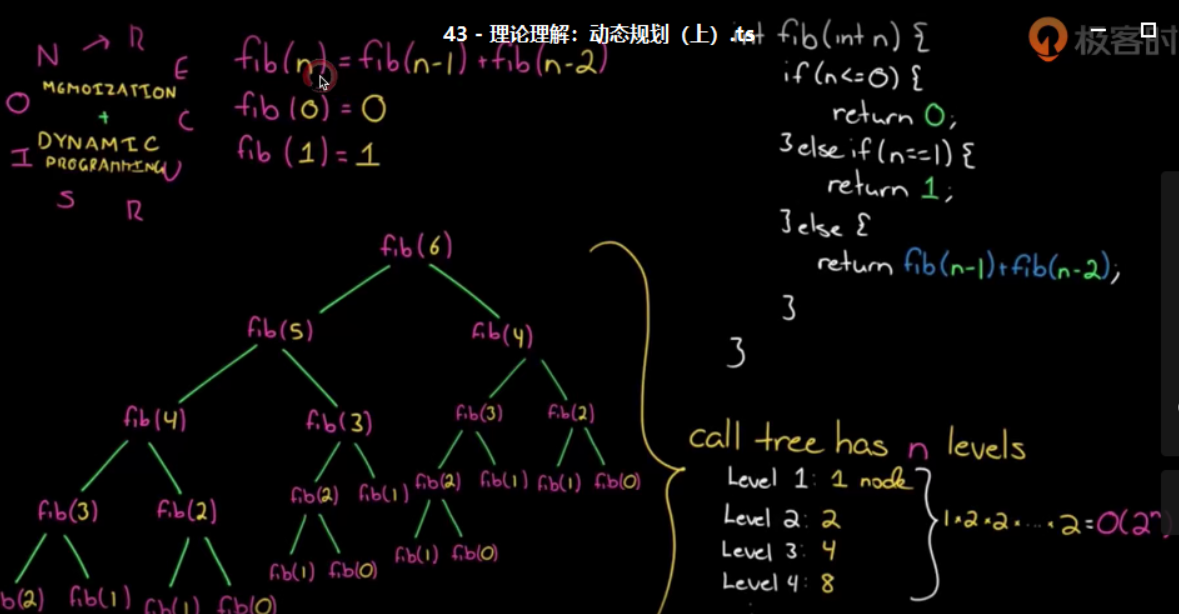 43 - 理论理解：动态规划（上）.ts
极客时
N → R
E
C
U
R
S
I
O
MEMOIZATION
+
DYNAMIC
PROGRAMMING
fib(n) = fib(n-1) + fib(n-2)
fib(0) = 0
fib(1) = 1
int fib(int n) {
if(n<=0) {
return 0;
}else if(n==1) {
return 1;
}else {
return fib(n-1)+fib(n-2);
}
}
fib(6)
fib(5) fib(4)
fib(4) fib(3) fib(3) fib(2)
fib(3) fib(2) fib(2) fib(1) fib(2) fib(1) fib(1) fib(0)
b(2) fib(1) fib(1) fib(0) fib(1) fib(0) fib(1) fib(0)
call tree has n levels
Level 1: 1 node
Level 2: 2
Level 3: 4
Level 4: 8
1*2*2*....*2=O(2^n)